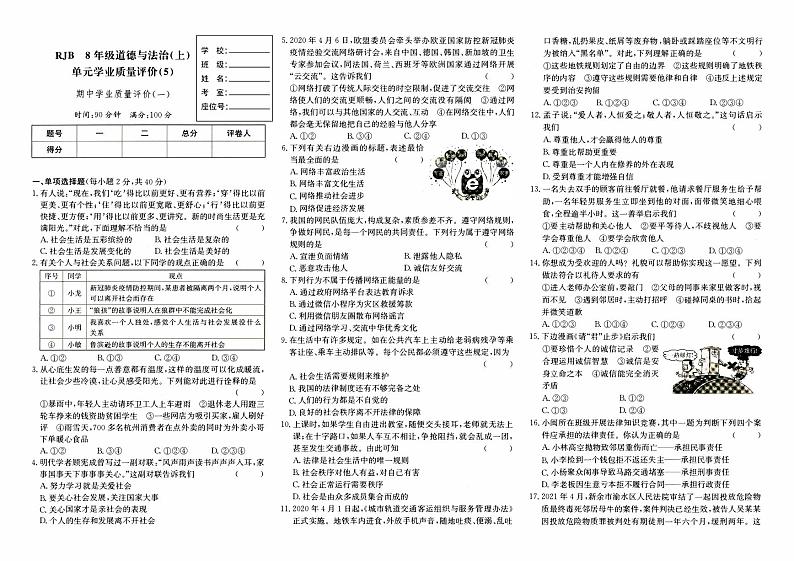 RJB 8年级道德与法治(上)
单元学业质量评价(5)
期中学业质量评价(一)
时间:90分钟 满分:100分
学 校:
班 级:
姓 名:
考 室:
座位号:
题号 一 二 总分 评卷人
得分
一、单项选择题(每小题2分,共40分)
1.有人说,“现在,我们‘吃’得比以前更好、更有营养;‘穿’得比以前
更美、更有个性;‘住’得比以前更宽敞、更舒心;‘行’得比以前更
快捷、更方便;‘用’得比以前更多、更讲究。新的时尚生活更是充
满阳光。”对此,下面理解不恰当的是 ( )
A.社会生活是五彩缤纷的 B.社会生活是复杂的
C.社会生活是发展变化的 D.社会生活是美好的
2.有关个人与社会关系问题,以下同学的观点正确的是 ( )
序号 同学 观点
① 小龙 新冠肺炎疫情防控期间,某患者被隔离两个月,说明个人
可以离开社会而存在
② 小王 “狼孩”的故事说明人在狼群中不能完成社会化
③ 小明 我喜欢一个人独处,感觉个人生活与社会发展没什么
关系
④ 小敏 鲁滨逊的故事说明个人的生存不能离开社会
A.①② B.①③ C.②④ D.③④
3.从心底生发的每一点善意都有温度,这样的温度可以化成暖流,
让社会少些冷漠,让心灵感受阳光。下列能对此进行诠释的是
( )
①暴雨中,年轻人主动请环卫工人上车避雨 ②退休老人用蹬三
轮车挣来的钱资助贫困学生 ③一些网店为吸引买家,雇人刷好
评 ④雨雪天,700多名杭州消费者在点外卖的同时为外卖小哥
下单暖心食品
A.①②③ B.①②④ C.①③④ D.②③④
4.明代学者顾宪成曾写过一副对联:“风声雨声读书声声声入耳,家
事国事天下事事事关心。”这副对联告诉我们 ( )
A.努力学习就是关爱社会
B.要关心社会发展,关注国家大事
C.关心国家才是亲社会的表现
D.个人的生存和发展不离开社会
5.2020年4月6日,欧盟委员会牵头举办欧亚国家防控新冠肺炎
疫情经验交流网络研讨会,来自中国、德国、韩国、新加坡的卫生
专家参加会议,法国、荷兰、西班牙等欧洲国家通过网络开展
“云交流”。这告诉我们 ( )
①网络打破了传统人际交往的时空限制,促进了交流交往 ②网
络使人们的交流更顺畅,人们之间的交流没有隔阂 ③通过网
络,我们可以与其他国家的人交流、互动 ④在网络交往中,人们
都会毫无保留地把自己的经验与他人分享
A.①② B.③④ C.②④ D.①③
6.下列有关右边漫画的标题,表述最恰
当最全面的是 ( )
A.网络丰富政治生活
B.网络丰富文化生活
C.网络推动社会进步
D.网络促进经济发展
7.我国的网民队伍庞大,构成复杂,素质参差不齐。遵守网络规则,
争做好网民,是每一个网民的共同责任。下列行为属于遵守网络
规则的是 ( )
A.宣泄负面情绪 B.泄露他人隐私
C.恶意攻击他人 D.诚信友好交流
8.下列行为不属于传播网络正能量的是 ( )
A.通过政府网络平台表达教育诉求
B.通过微信小程序为灾区救援筹款
C.利用微信朋友圈散布网络谣言
D.通过网络学习、交流中华优秀文化
9.在生活中有许多规定。如在公共汽车上主动给老弱病残孕等乘
客让座、乘车主动排队等。每个公民都必须遵守这些规定,因为
( )
A.社会生活需要规则来维护
B.我国的法律制度还有不够完备之处
C.人们的行为都是不自觉的
D.良好的社会秩序离不开法律的保障
10.上课时,如果学生自由进出教室,随便交头接耳,老师就无法上
课;在十字路口,如果人车互不相让,争抢阻挡,就会乱成一团,
甚至发生交通事故。由此可知 ( )
A.法律是社会生活中的唯一规则
B.社会秩序对他人有益,对自己有害
C.社会正常运行需要秩序
D.社会是由众多成员集合而成的
11.2020年4月1日起,《城市轨道交通客运组织与服务管理办法》
正式施行。地铁车内进食、外放手机声音,随地吐痰、便溺、乱吐
口香糖,乱扔果皮、纸屑等废弃物,躺卧或踩踏座位等不文明行
为被纳入“黑名单”。对此,下列理解正确的是 ( )
①这些地铁规则划定了自由的边界 ②这些规则明确了地铁秩
序的内容 ③遵守这些规则需要他律和自律 ④违反上述规定
要受到治安拘留
A.①②③ B.①②④ C.①③④ D.②③④
12.孟子说:“爱人者,人恒爱之;敬人者,人恒敬之。”这句话启示
我们 ( )
A.尊重他人,才会赢得他人的尊重
B.尊重比帮助更重要
C.尊重是一个人内在修养的外在表现
D.受到尊重才能增强自信
13.一名失去双手的顾客前往餐厅就餐,他请求餐厅服务生给予帮
助,一名年轻男服务生立即坐到他的对面,面带微笑地细心喂
食,全程逾半小时。这一善举启示我们 ( )
①要主动帮助和关心他人 ②要平等待人,不歧视他人 ③要
学会尊重他人 ④要学会欣赏他人
A.①②③ B.①②④ C.①③④ D.②③④
14.你想成为受欢迎的人吗？礼貌可以帮助你实现这一愿望。下列
做法符合以礼待人要求的有 ( )
①进入老师办公室前,要敲门 ②父母的同事来家里做客时,视
而不见 ③遇到邻居时,主动打招呼 ④碰掉同桌的书时,拾起
并微笑道歉
A.①②③ B.①②④ C.①③④ D.②③④
15.下边漫画《请“君”止步》启示我们 ( )
①要珍惜个人的诚信记录 ②要
合理运用诚信智慧 ③诚信是安
身立命之本 ④诚信能完全消灭
矛盾
A.②③ B.①②
C.①③ D.②④
16.小闽所在班级开展法律知识竞赛,其中一题为判断下列四个案
件应承担的法律责任。你认为正确的是 ( )
A.小林高空抛物致邻居重伤而亡——承担民事责任
B.小李捡到一个钱包拒不返还失主——承担民事责任
C.小杨聚众闹事导致马路交通堵塞——承担刑事责任
D.李老板因生意亏本拒不归还欠款——承担行政责任
17.2021年4月,新余市渝水区人民法院审结了一起因投放危险物
质最终毒死邻居母牛的案件,案件判决已经生效,被告人吴某某
因投放危险物质罪被判处有期徒刑一年六个月,缓刑两年。这